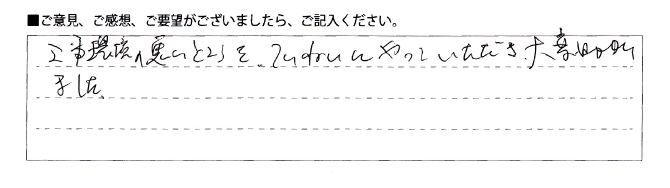 ■ご意見、ご感想、ご要望がございましたら、ご記入ください。
工事環境の悪いところを、ていねいにやっていただき、大変助かり
ました。